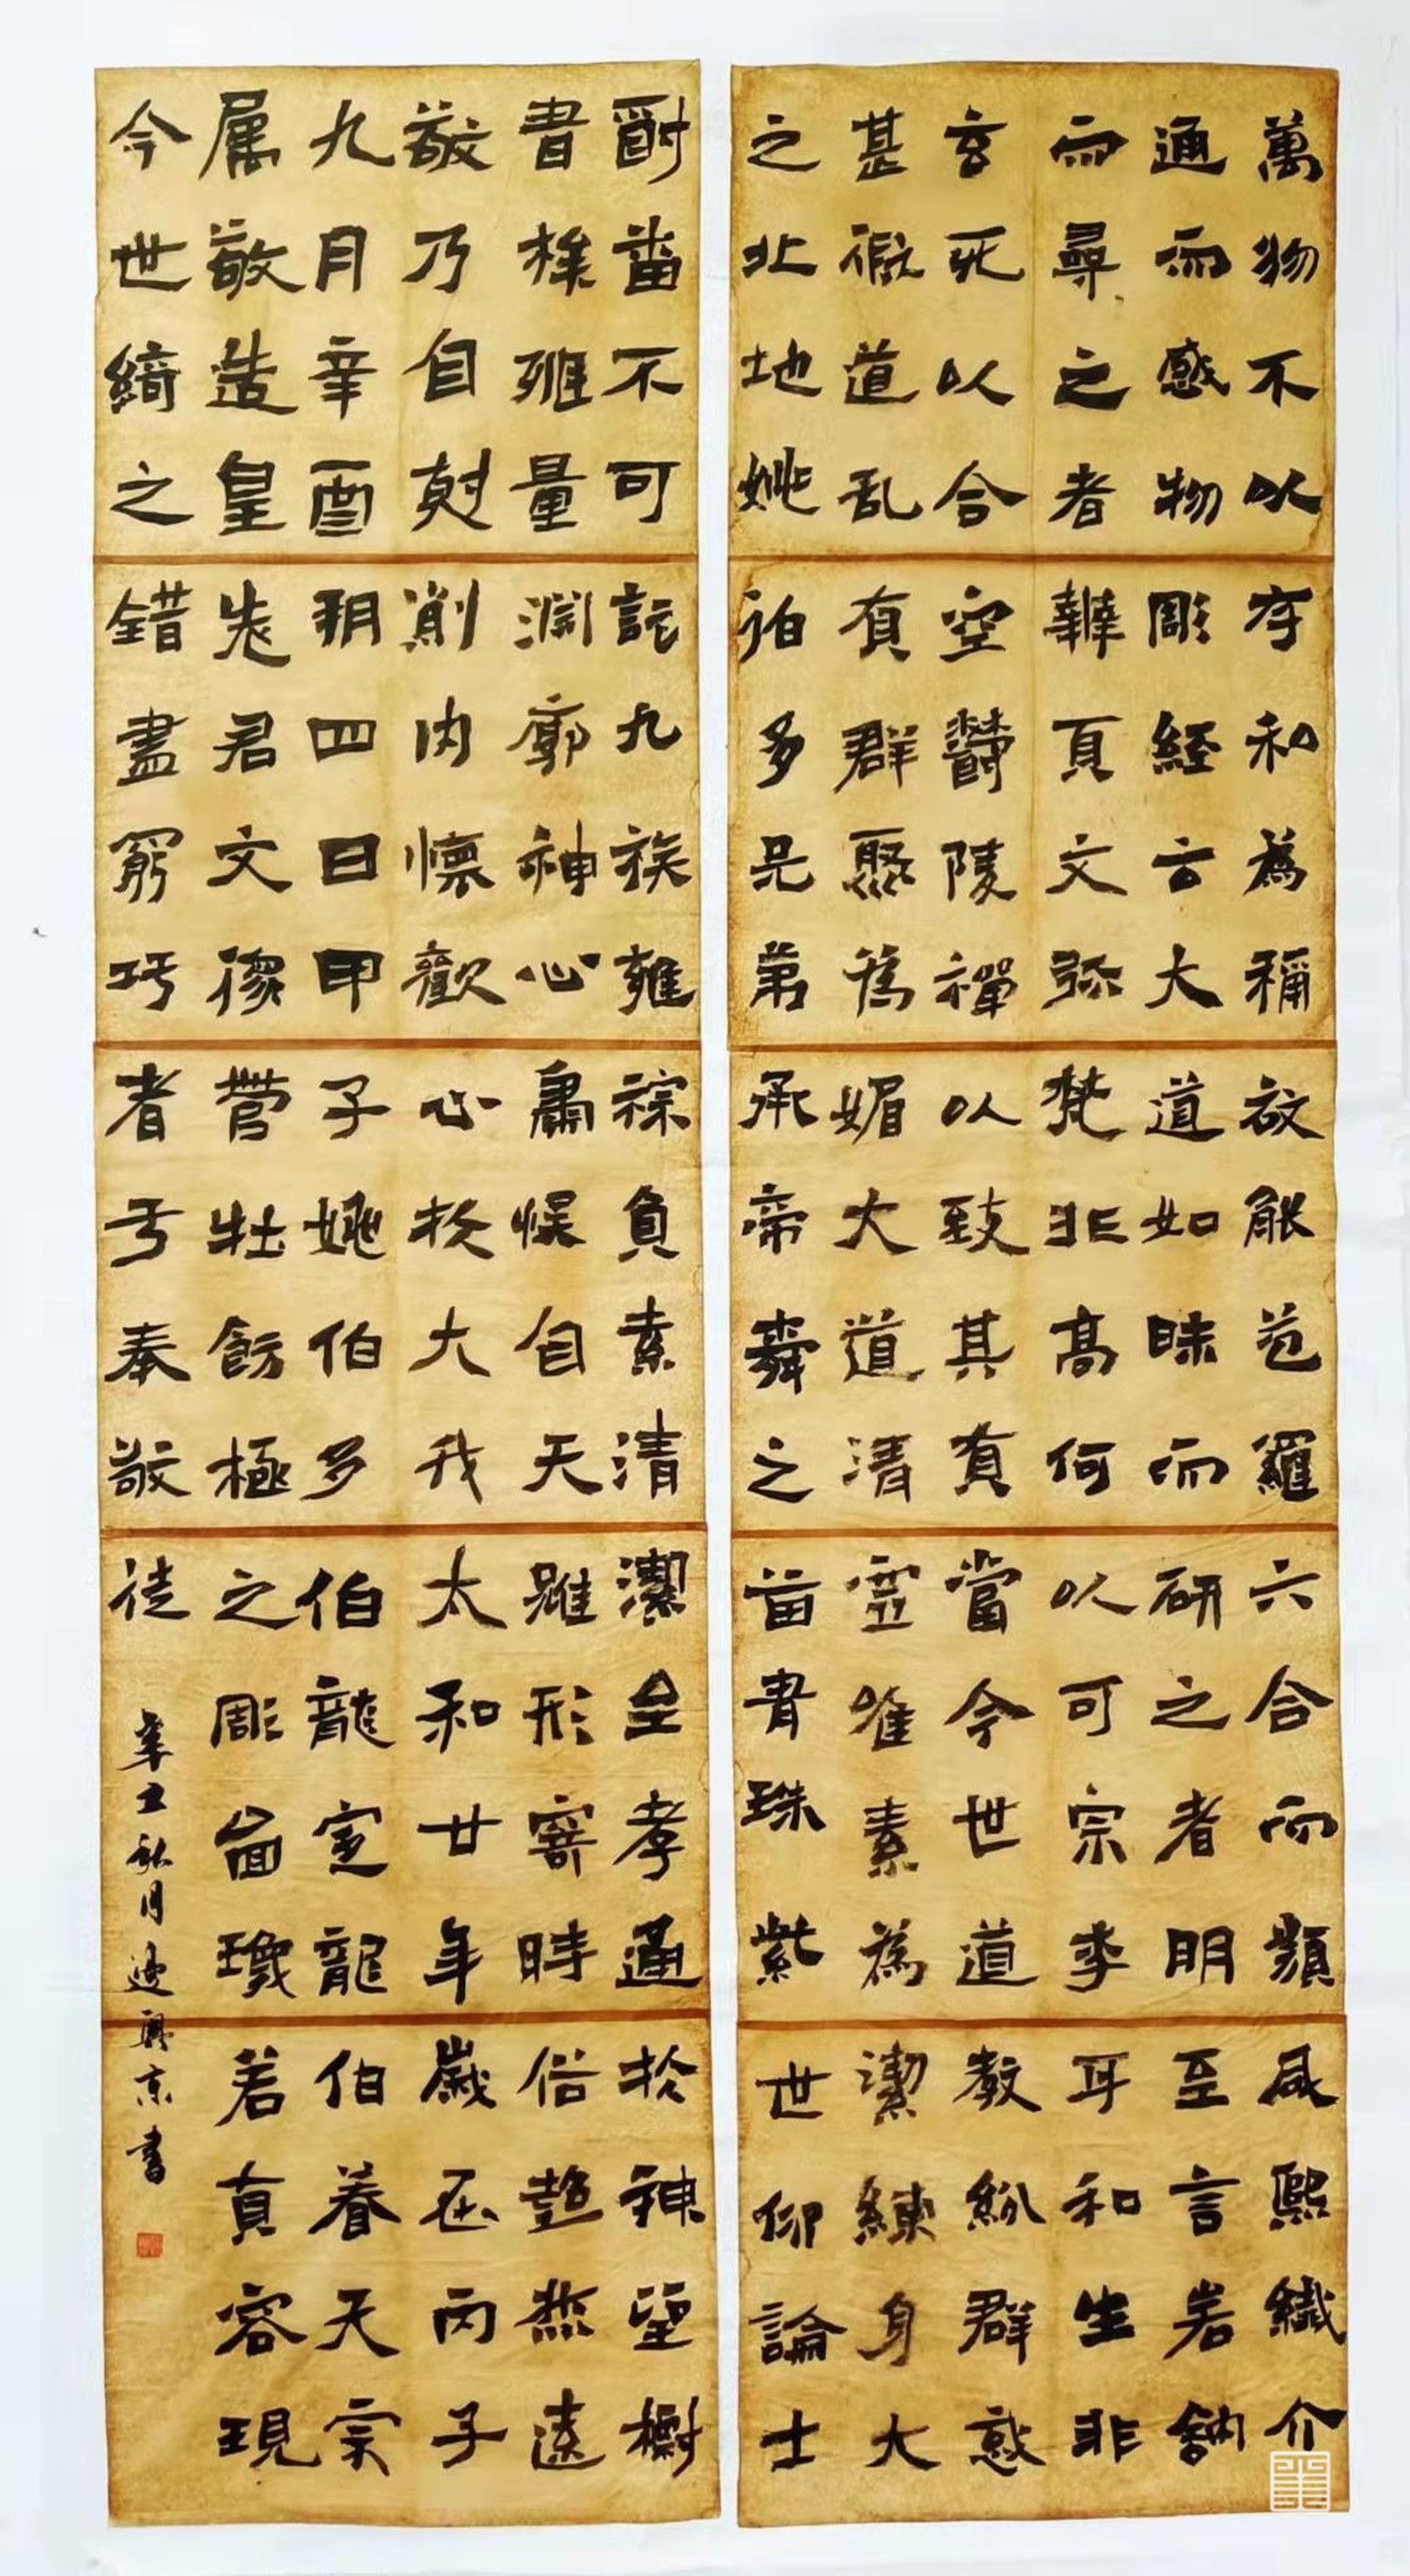 萬物不以存和為稱故能苞羅六合而類咸熙纖介
通而感物彫經云大道如昧而研之者明至言若訥
而尋之者韡真文弥梵非高何以可宗李耳和生非
玄死以合空鬱陵禪以致其真當今世道教紛群惑
甚假道乱有群聚為媚大道清靈唯素為潔練身大
之北地姚伯多兄弟承帝舜之苗胄珠紫世仰論士
爵畨不可託九族雍稼負素清潔至孝通於神望樹
書槎雅量淵廓神心肅悮自天雖形寄時俗超然遠
敬乃自尅削内懷歡心於大我太和廿年歲在丙子
九月辛酉朔四日甲子姚伯多伯龍定龍伯養天宗
属敬造皇先君文像營壯飭極之彫畐瓊若真容現
今世綺之錯盡窮巧者于奉敬徒
辛丑秋月 興京書